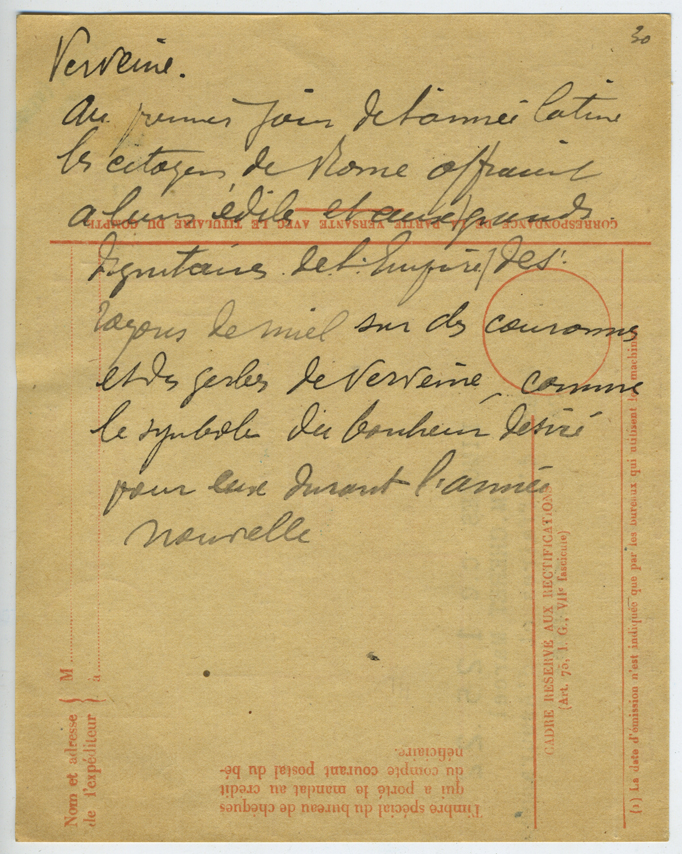 30
Verveine.
Au premier jour de l'année latine
les citoyens de Rome offraient
a leurs édiles et aux grands
dignitaires de l'Empire / des
rayons de miel sur des couronnes
et des gerbes de Verveine, comme
le symbole du bonheur désiré
pour eux durant l'année
nouvelle
CORRESPONDANCE DE LA PARTIE VERSANTE AVEC LE TITULAIRE DU COMPTE
Nom et adresse
de l'expéditeur
M
à
Timbre spécial du bureau de chèques
qui a porté le mandat au crédit
du compte courant postal du bé-
néficiaire.
CADRE RÉSERVÉ AUX RECTIFICATIONS
(Art. 75, I. G., VIIe fascicule)
(1) La date d'émission n'est indiquée que par les bureaux qui utilisent les machin